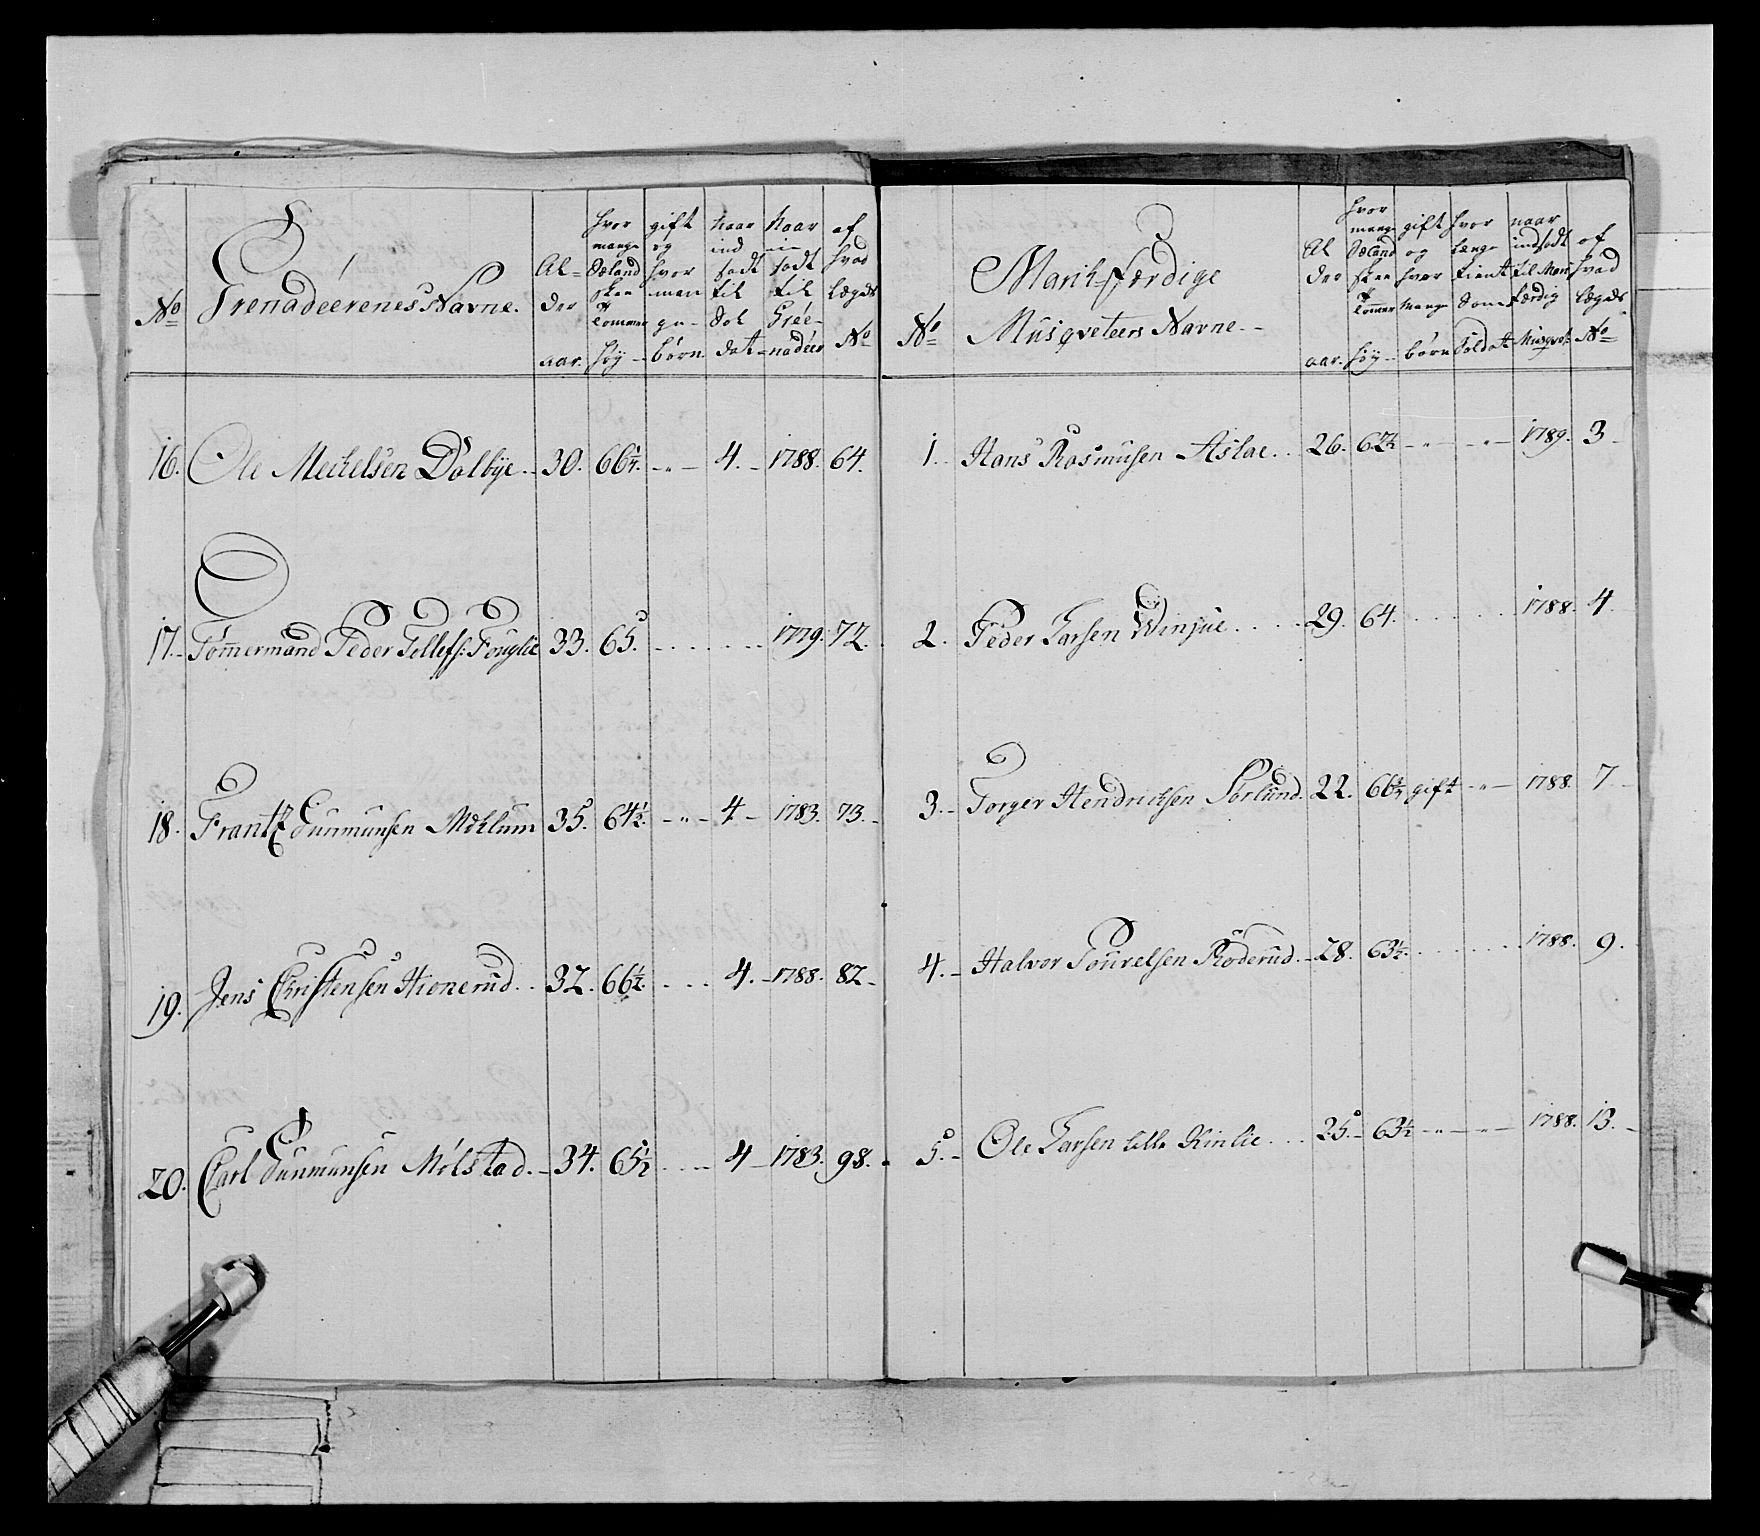 No
Grenadeerenes Navne.
Al-
der
aar.
hvor
mange
Sæland
ske
Tommer
høy
gift
og
hvor
man
ge
børn
naar
ind
sadt
til
Sol
dat
Naar
in
sadt
til
Gree-
nadeer
af
hvad
lægds
No
16. Ole Mickelsen Dalbye. 30. 66½. - " - 4. - 1788. 64.
17. Tømmermand Peder Tollefs: Fouglie 33. 65. 1779. 72.
18. Frantz Gunmunsen Mæhlum 35. 64½. - " - 4 - 1783. 73.
19. Jens Christensen Hionerud. 32. 66½. 4. - 1788. 82.
20. Carl Gunmunsen Mølstad. 34. 65½ 4 - 1783. 98.
No
March-færdige
Musqveteers Navne.
Al
der
aar.
hvor
mange
Sæland
ske
Tommer
høy
gift
og
hvor
mange
børn
hvor
længe
tient
som
Soldat
naar
indsadt
til Mars
færdig
Musqvet:
af
hvad
lægds
No
1. Hans Rasmusen Aslae. 26. 62½ - " - - " - 1789. 3
2. Peder Larsen Winjue. 29. 64. 1788. 4.
3. Torger Hendricksen Sørlund. 22. 66¾ gift - " - 1788. 7
4. Halver Pourelsen Roderud. 28. 63½. 1788. 9.
5. Ole Larsen lille Kinlie. 25. 63½ - " - - " - 1788. 13.